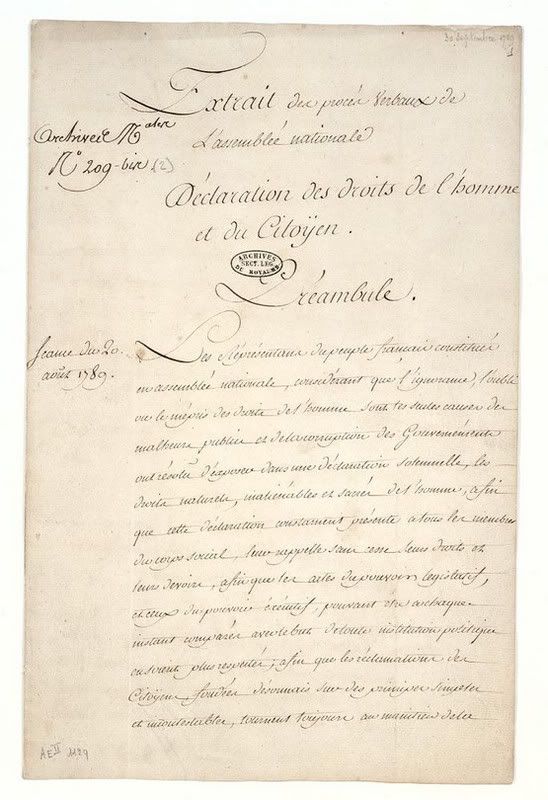 30 Septembre 1789
1
Extrait des procès Verbaux de
L'assemblée nationale
archives N.ales
N.º 209-bis (2)
Déclaration des droits de l'homme
et du Citoÿen.
ARCHIVES
SECT. LEG.
DU ROYAUME
Préambule.
Séance du 20.
août 1789.
Les Représentans du peuple francais constitués
en assemblée nationale, considérant que l'ignorance, l'oubli
ou le mépris des droits de l'homme sont les seules causes des
malheurs publics et de la corruption des Gouvernements
ont résolu d'exposer dans une déclaration solemnelle, les
droits naturels, inaliénables et sacrés de l'homme, afin
que cette déclaration constament présente a tous les membres
du corps social, leur rappelle sans cesse leurs droits et
leurs devoirs, afin que les actes du pouvoir législatif,
et ceux du pouvoir éxécutif, pouvant etre a chaque
instant comparés avec le but de toute institution politique
en soient plus respectés; afin que les réclamations des
Citoÿens, fondées désormais sur des principes simples
et incontestables, tournent toujours au maintien de la
AE II 1129